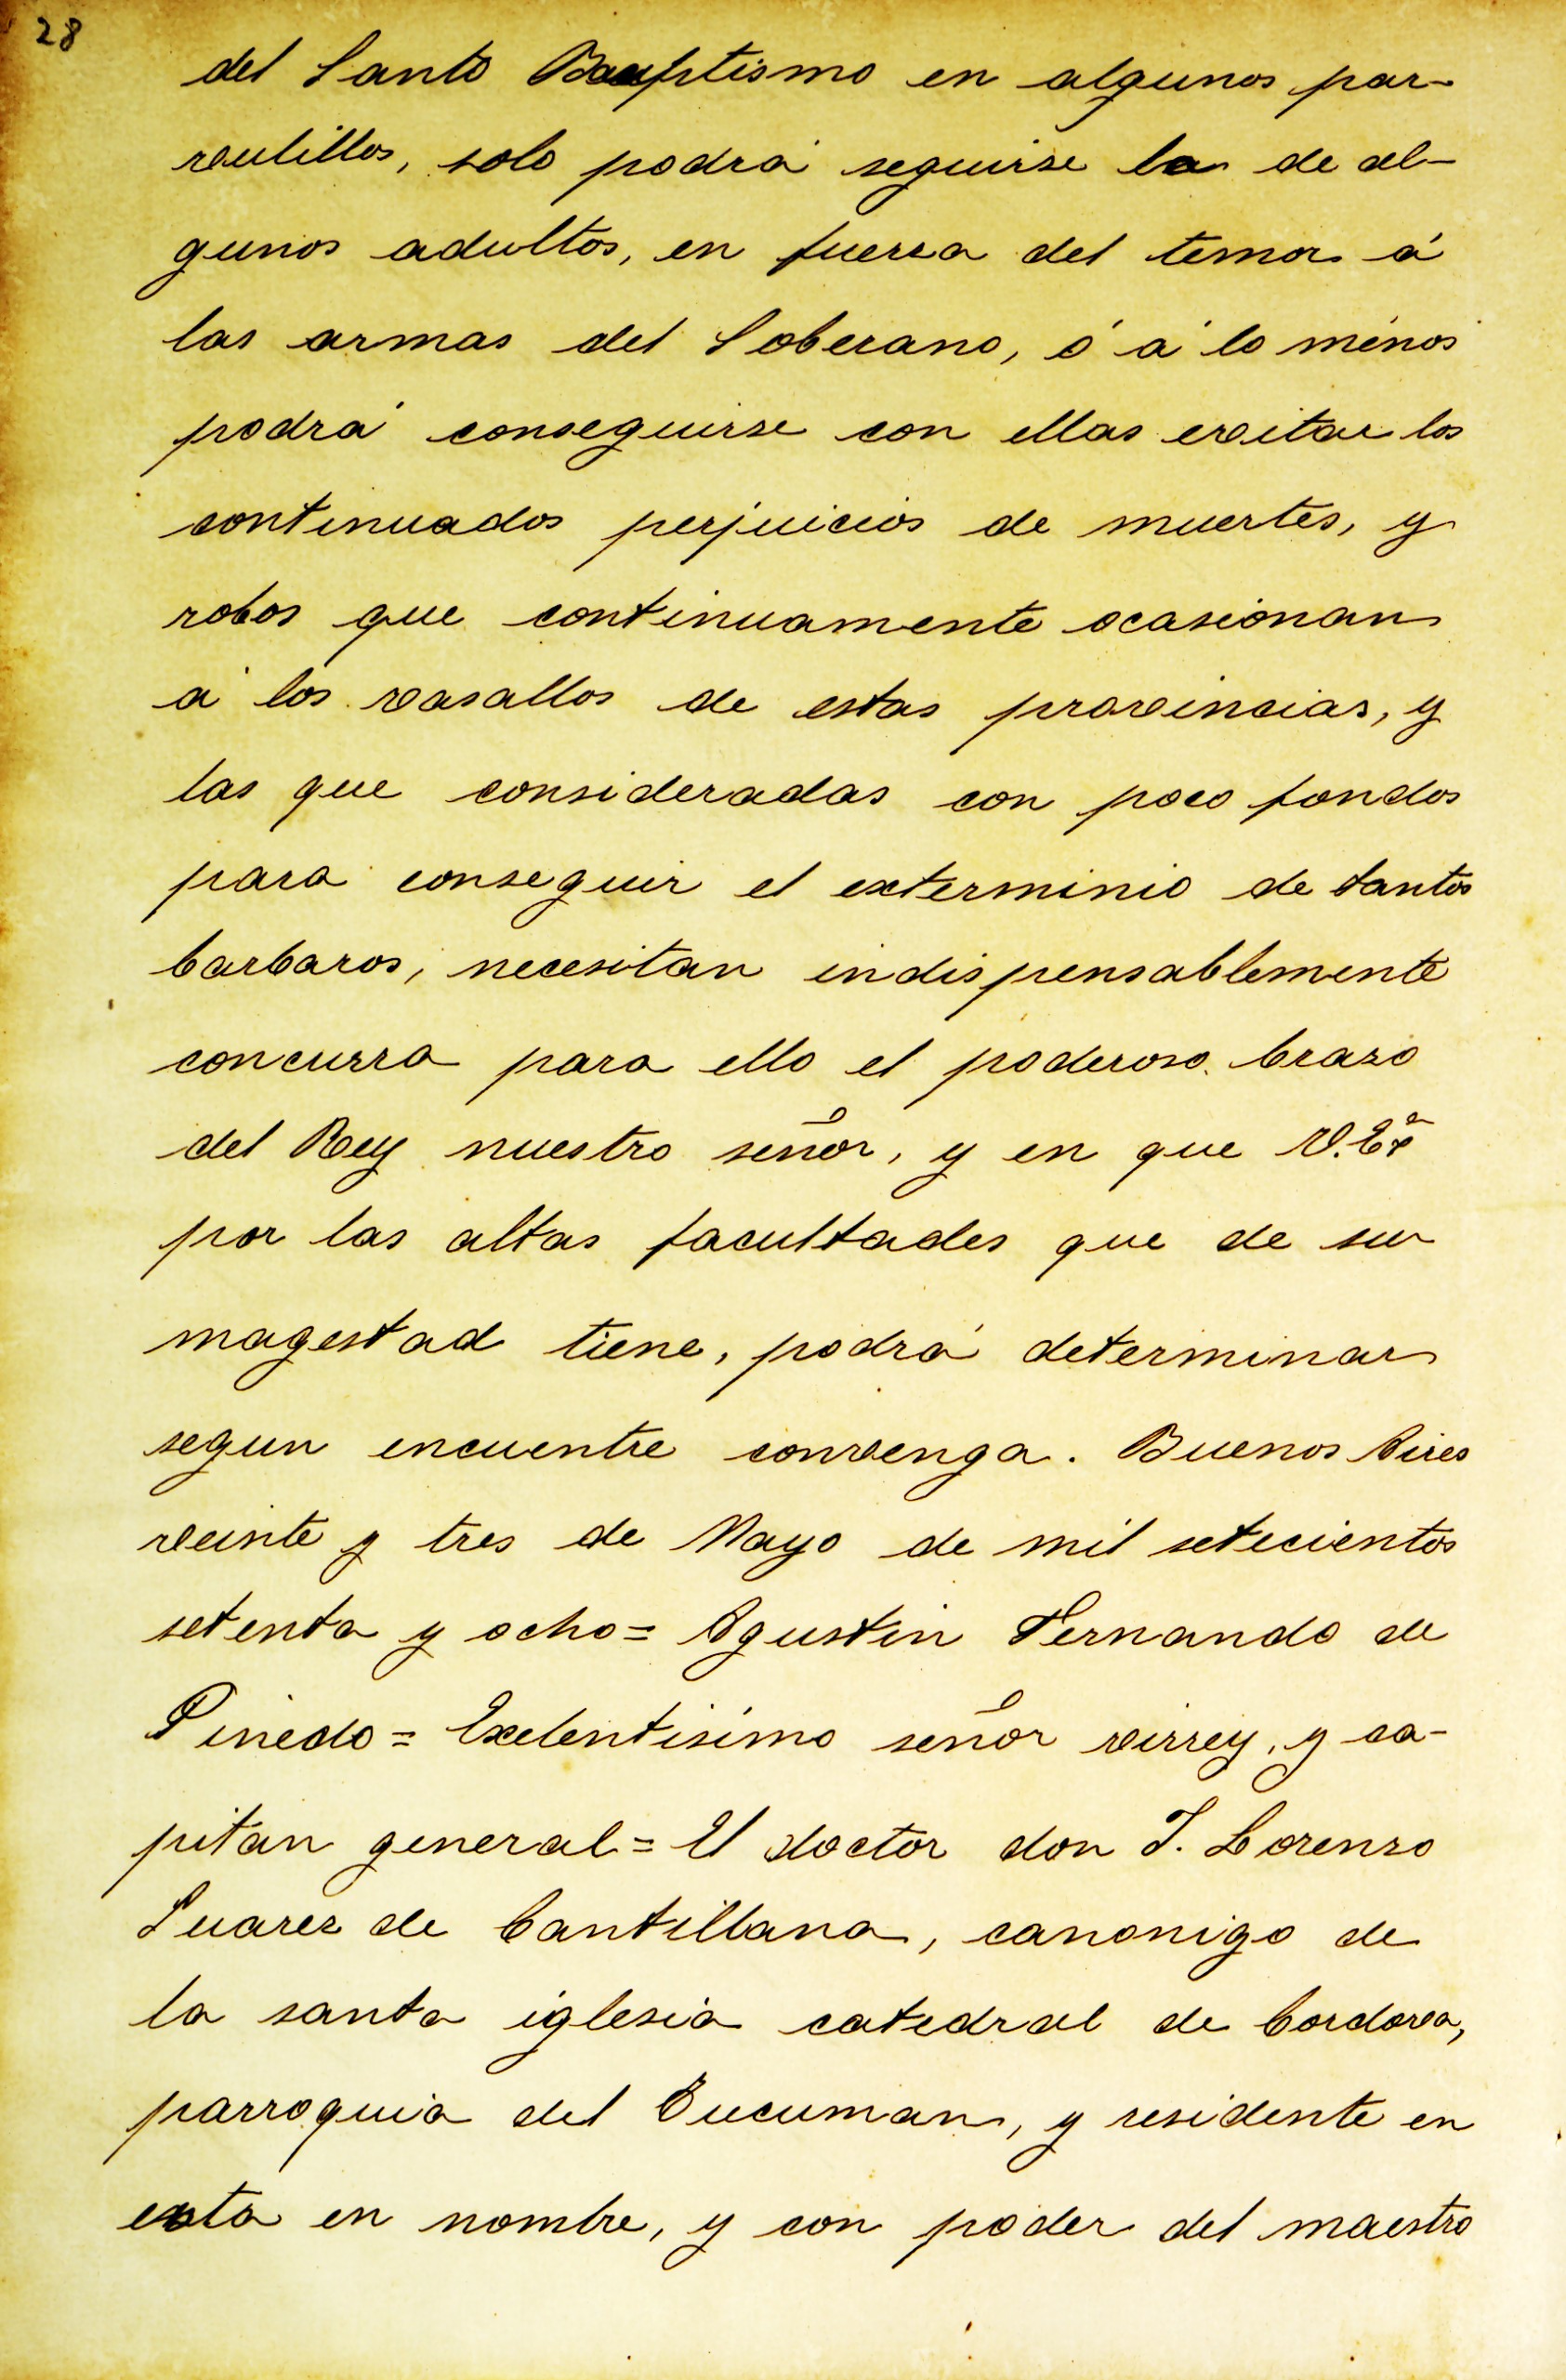 28
del Santo Bauptismo en algunos par-
vulillos, solo podrá seguirse la de al-
gunos adultos, en fuerza del temor á
las armas del Soberano, ó á lo ménos
podrá conseguirse con ellas evitar los
continuados perjuicios de muertes, y
robos que continuamente ocasionan
á los vasallos de estas provincias, y
las que consideradas con poco fondos
para conseguir el exterminio de tantos
barbaros, necesitan indispensablemente
concurra para ello el poderoso brazo
del Rey nuestro señor, y en que V. Exª
por las altas facultades que de su
magestad tiene, podrá determinar
segun encuentre convenga. Buenos Aires
veinte y tres de Mayo de mil setecientos
setenta y ocho = Agustin Fernando de
Pinedo = Exelentisimo señor virrey, y ca-
pitan general = El doctor don J. Lorenzo
Suarez de Cantillana, canonigo de
la santa iglesia catedral de Cordova,
parroquia del Tucuman, y residente en
esta en nombre, y con poder del maestro